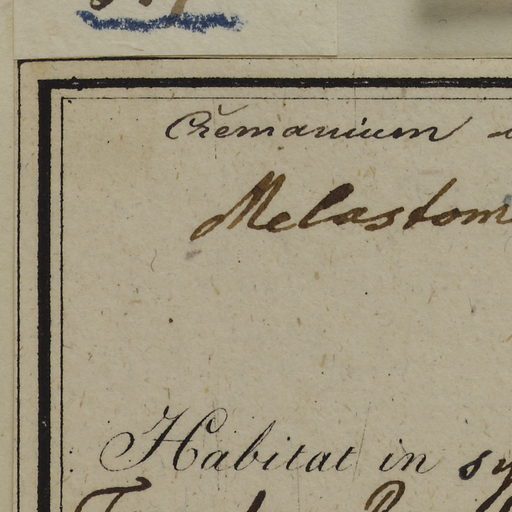 Cremanium
Melastom
Habitat in sy